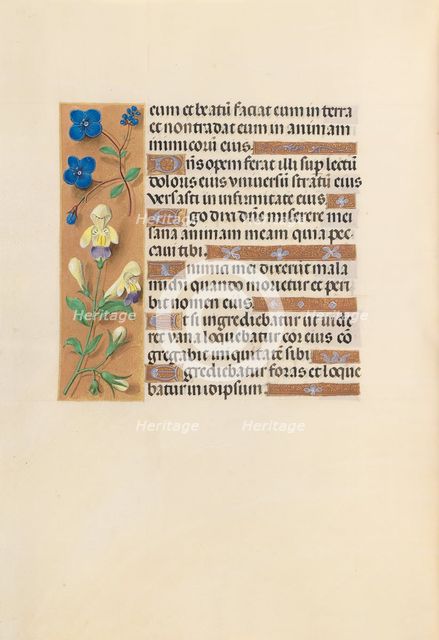 eum et beatū faciat eum in terra
et non tradat eum in animam
inimicorū eius.
Dn̄s opem ferat illi sup lectū
doloris eius vniuersū stratū eius
versasti in infirmitate eius.
Ego dixi dn̄e miserere mei
sana animam meam quia pec
caui tibi.
Inimici mei dixerūt mala
michi quando morietur et peri
bit nomen eius.
Et si ingrediebatur ut uide
ret vana loquebatur cor eius cō
gregabit iniquitatē sibi
Egrediebatur foras et loque
batur in idipsum.
Heritage Heritage
Heritage Heritage
Heritage Heritage